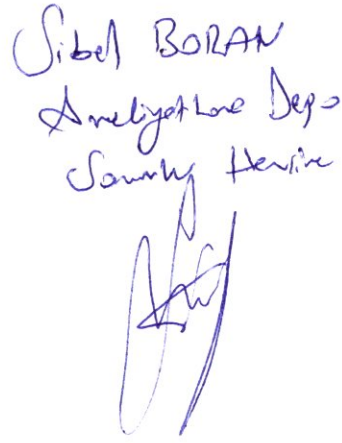 Sibel BORAN
Ameliyathane Depo
Sorumlu Hemşire